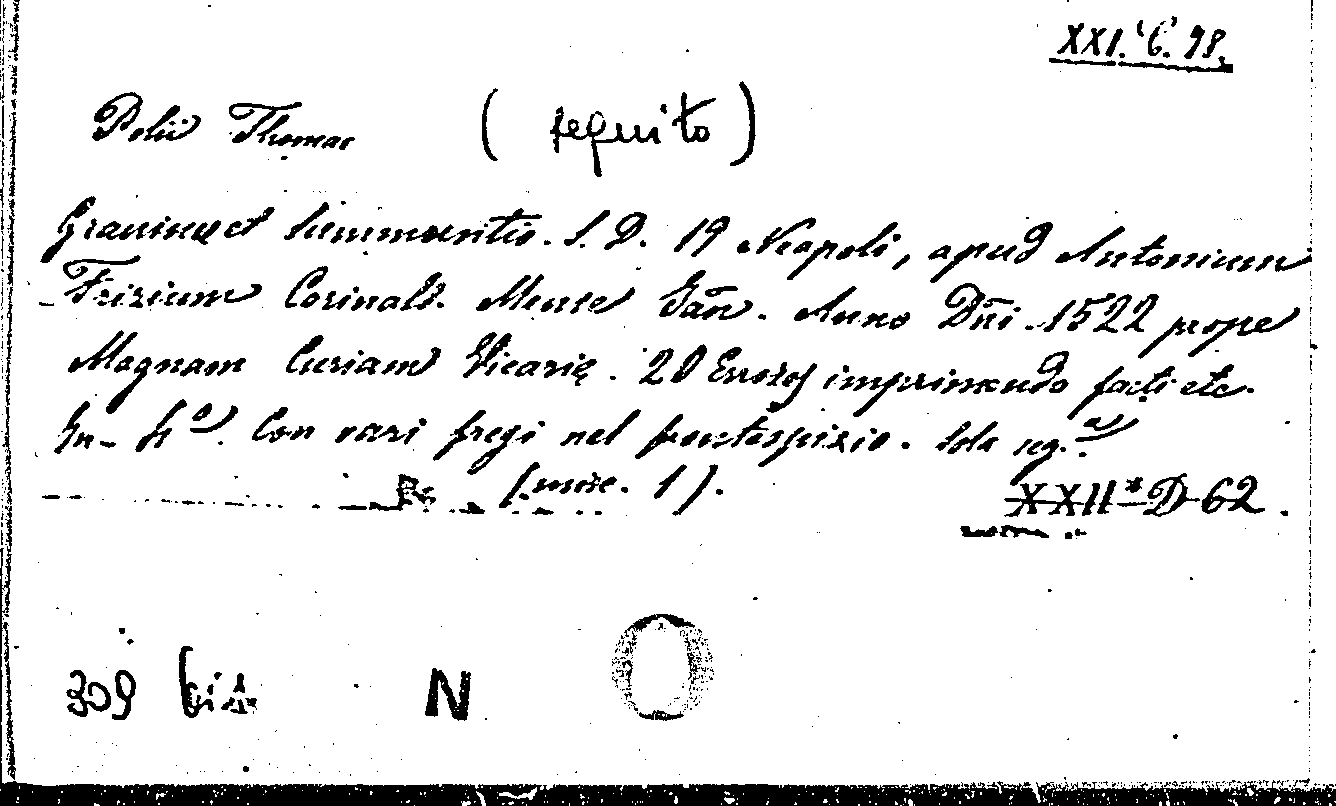 XXI. C. 98.
Pelii Thomae ( seguito )
Gravinę et Summontis. S. D. 19 Neapoli, apud Antonium
Frizium Corinald. Mense Jan̄. Anno Dn̄i. 1522 prope
Magnam Curiam Vicarię. 20 Errores imprimendo facti etc.
In-4º. Con vari fregi nel frontespizio. Sola seg.a
(misc. 1).
XXII* D 62.
309 bis N